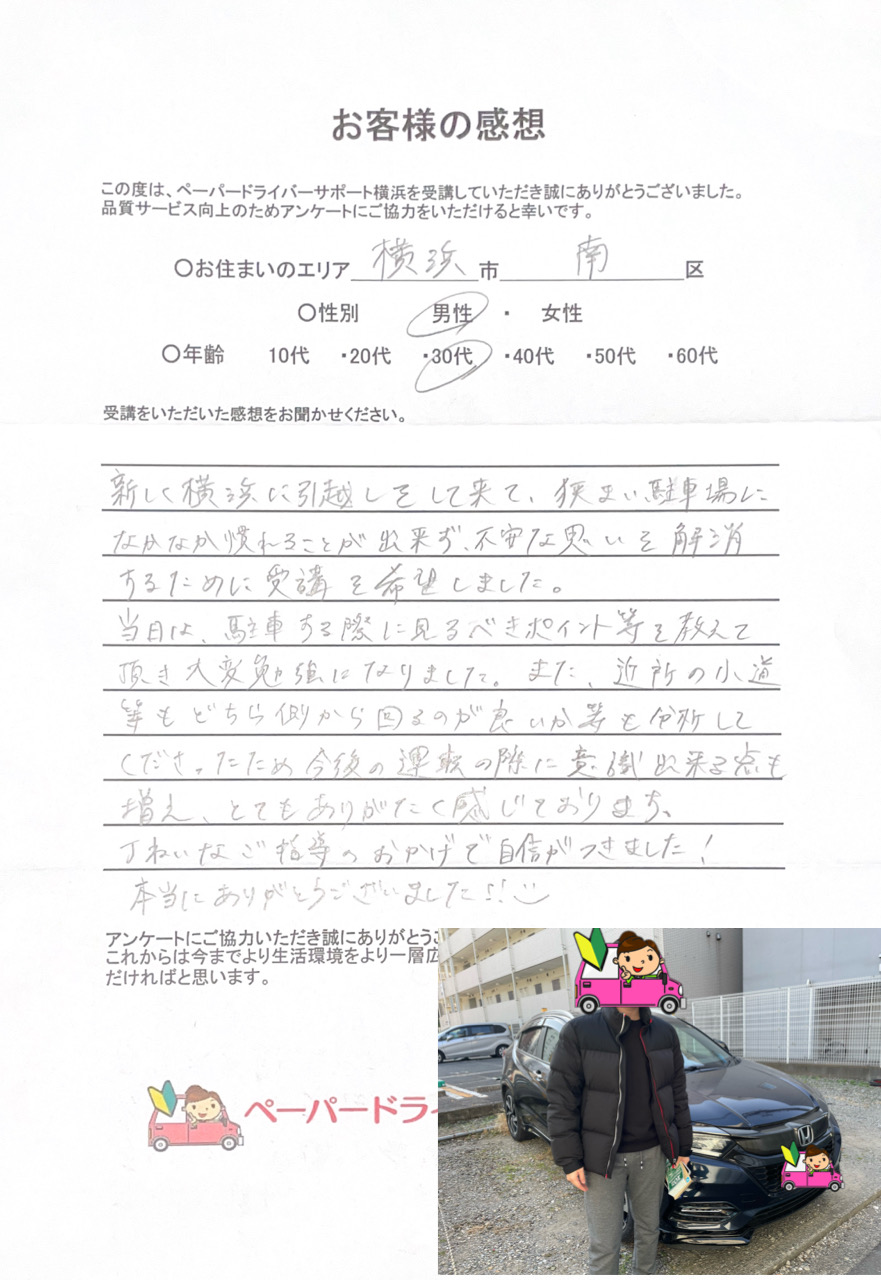 お客様の感想
この度は、ペーパードライバーサポート横浜を受講していただき誠にありがとうございました。
品質サービス向上のためアンケートにご協力をいただけると幸いです。
〇お住まいのエリア 横浜 市 南 区
〇性別 男性 ・ 女性
〇年齢 10代 ・20代 ・30代 ・40代 ・50代 ・60代
受講をいただいた感想をお聞かせください。
新しく横浜に引越しをして来て、狭まい駐車場に
なかなか慣れることが出来ず、不安な思いを解消
するために受講を希望しました。
当日は、駐車する際に見るべきポイント等を教えて
頂き大変勉強になりました。また、近所の小道
等もどちら側から回るのが良いか等も分析して
くださったため今後の運転の際に意識出来る点も
増え、とてもありがたく感じております。
丁ねいなご指導のおかげで自信がつきました！
本当にありがとうございました!!
アンケートにご協力いただき誠にありがとうご
これからは今までより生活環境をより一層広
だければと思います。
ペーパードライ